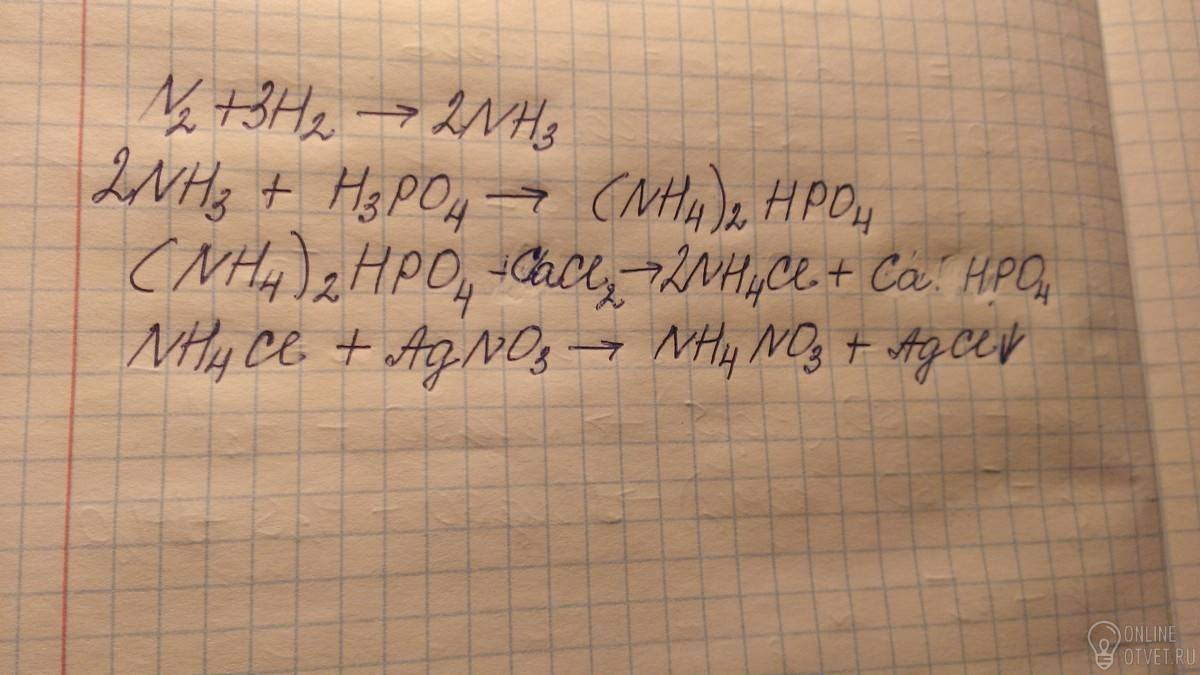 N₂ + 3H₂ → 2NH₃
2NH₃ + H₃PO₄ → (NH₄)₂ HPO₄
(NH₄)₂HPO₄ + CaCl₂ → 2NH₄Cl + Ca HPO₄
NH₄Cl + AgNO₃ → NH₄NO₃ + AgCl↓
ONLINE
OTVET.RU